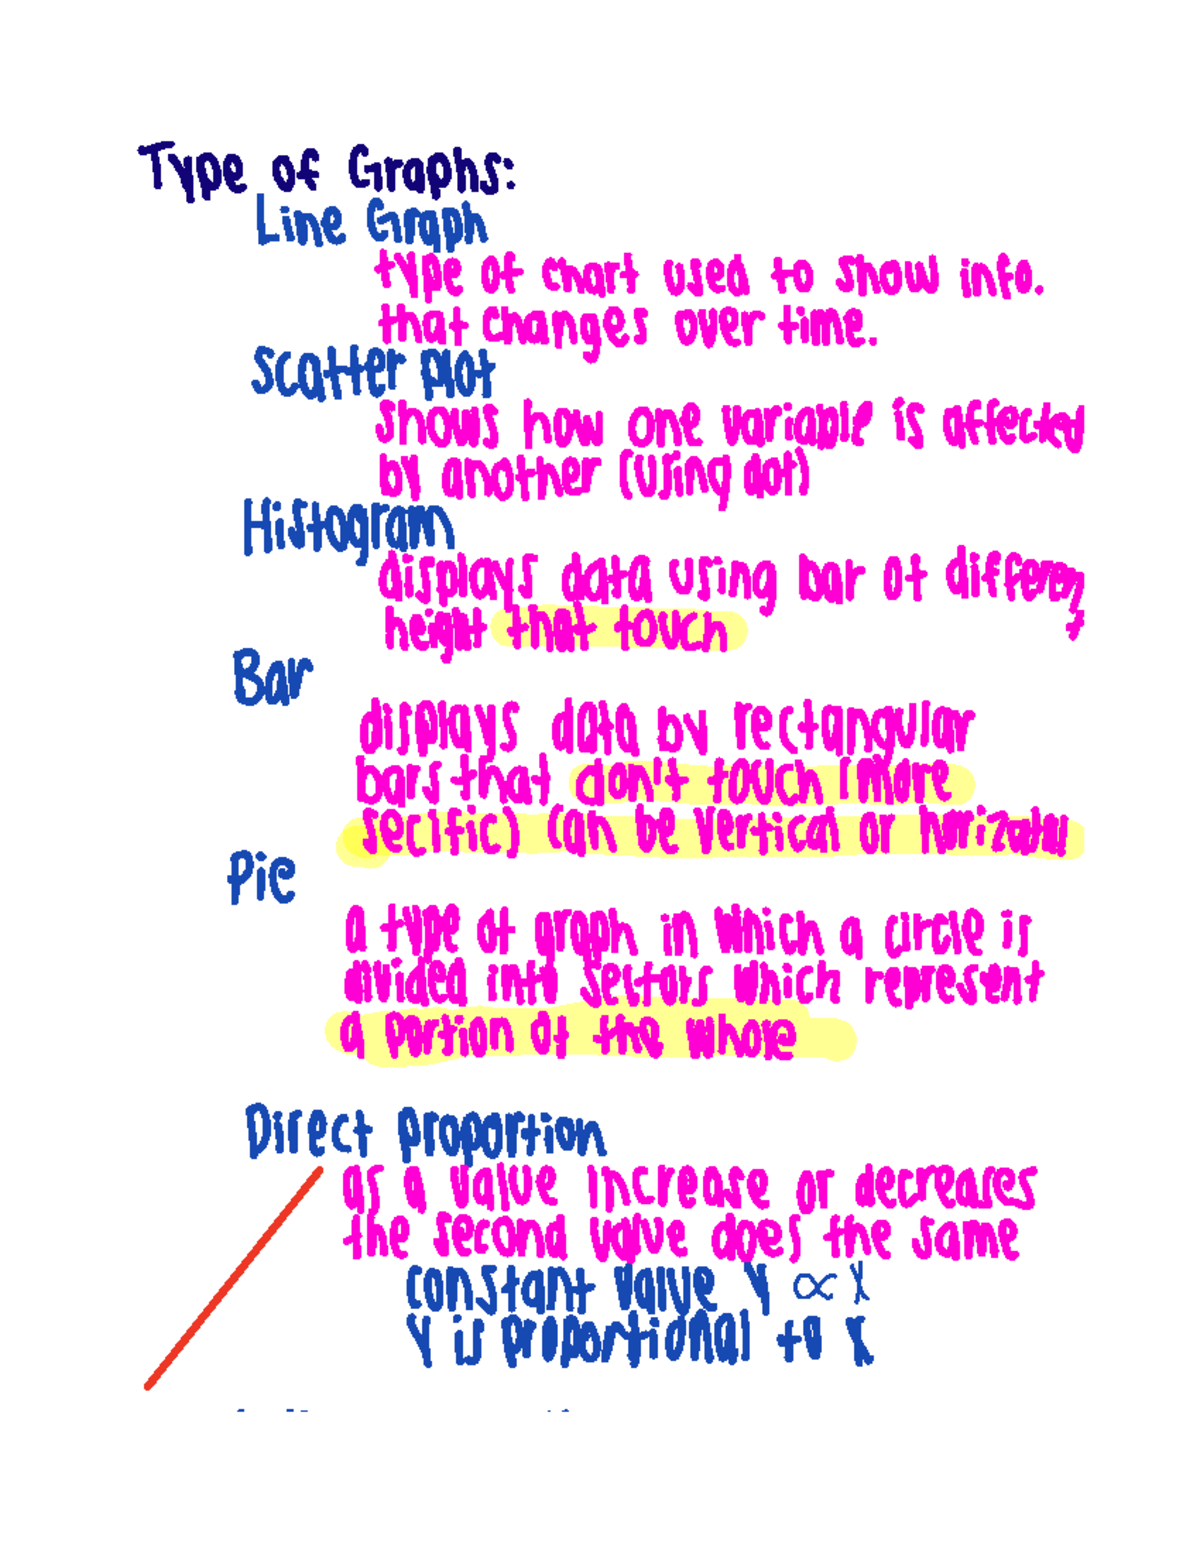 Type of Graphs:
Line Graph
type of chart used to show info.
that changes over time.
Scatter plot
shows how one variable is affected
by another (using dot)
Histogram
displays data using bar of different
height that touch
Bar
displays data by rectangular
bars that don't touch (more
secific) can be vertical or horizontal
Pie
a type of graph in which a circle is
divided into sectors which represent
a portion of the whole
Direct proportion
as a value increase or decreases
the second value does the same
constant value y ∝ x
y is proportional to x